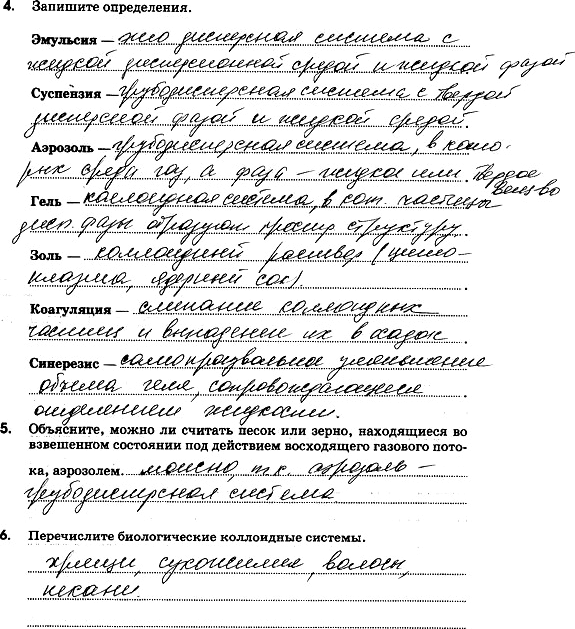 4. Запишите определения.
Эмульсия — это дисперсная система с
жидкой дисперсионной средой и жидкой фазой
Суспензия — грубодисперсная система с твердой
дисперсной фазой и жидкой средой.
Аэрозоль — грубодисперсная система, в кото-
рых среда газ, а фаза — жидкое или твердое
вещ-во
Гель — коллоидная система, в кот. частицы
дисп. фазы образуют простр. структуру.
Золь — коллоидный раствор (цито-
плазма, ядерный сок)
Коагуляция — слипание коллоидных
частиц и выпадении их в осадок.
Синерезис — самопроизвольное уменьшение
объема геля, сопровождающееся
отделением жидкости.
5. Объясните, можно ли считать песок или зерно, находящиеся во
взвешенном состоянии под действием восходящего газового пото-
ка, аэрозолем. можно, т.к. аэрозоль —
грубодисперсная система
6. Перечислите биологические коллоидные системы.
хрящи, сухожилия, волосы,
ткани